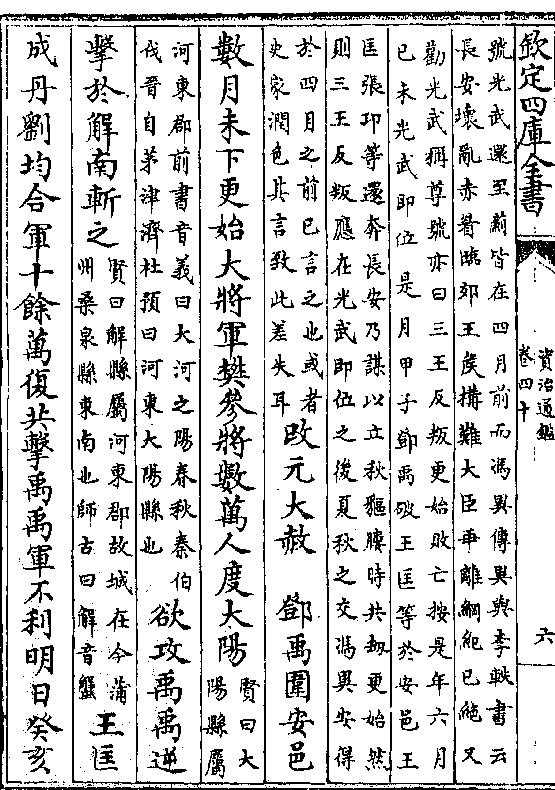 欽定四庫全書
資治通鑑
卷四十
六
號光武還至薊皆在四月前而馮異傳異與李軼書云
長安壞亂赤眉臨郊王侯搆難大臣乖離綱紀已絕又
勸光武稱尊號亦曰三王反叛更始敗亡按是年六月
已未光武即位是月甲子鄧禹破王匡等於安邑王
匡張卬等還奔長安乃謀以立秋貙膢時共劫更始然
則三王反叛應在光武即位之後夏秋之交馮異安得
於四月之前已言之也或者
史家潤色其言致此差失耳
改元大赦 鄧禹圍安邑
數月未下更始大將軍樊參將數萬人度大陽
賢曰大
陽縣屬
河東郡前書音義曰大河之陽春秋秦伯
伐晉自茅津濟杜預曰河東大陽縣也
欲攻禹禹逆
擊於解南斬之
賢曰解縣屬河東郡故城在今蒲
州桑泉縣東南也師古曰解音蟹
王匡
成丹劉均合軍十餘萬復共擊禹禹軍不利明日癸亥